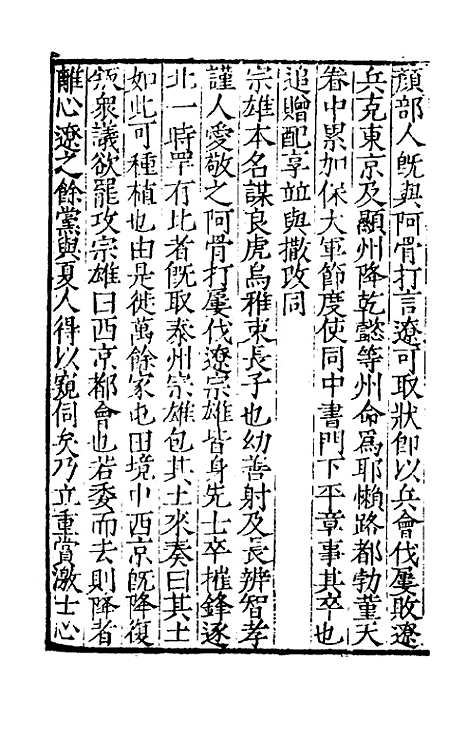 顏部人旣與阿骨打言遼可取狀卽以兵會伐屢敗遼
兵克東京及顯州降乾懿等州命爲耶懶路都勃菫天
眷中累加保大軍節度使同中書門下平章事其卒也
追贈配享並與撒改同
宗雄本名謀良虎烏雅束長子也幼善射及長辨智孝
謹人愛敬之阿骨打屢伐遼宗雄皆身先士卒摧鋒逐
北一時罕有比者旣取泰州宗雄包其土來奏曰其土
如此可種植也由是徙萬餘家屯田境中西京旣降復
叛衆議欲罷攻宗雄曰西京都會也若委而去則降者
離心遼之餘黨與夏人得以窺伺矣乃立重賞激士心